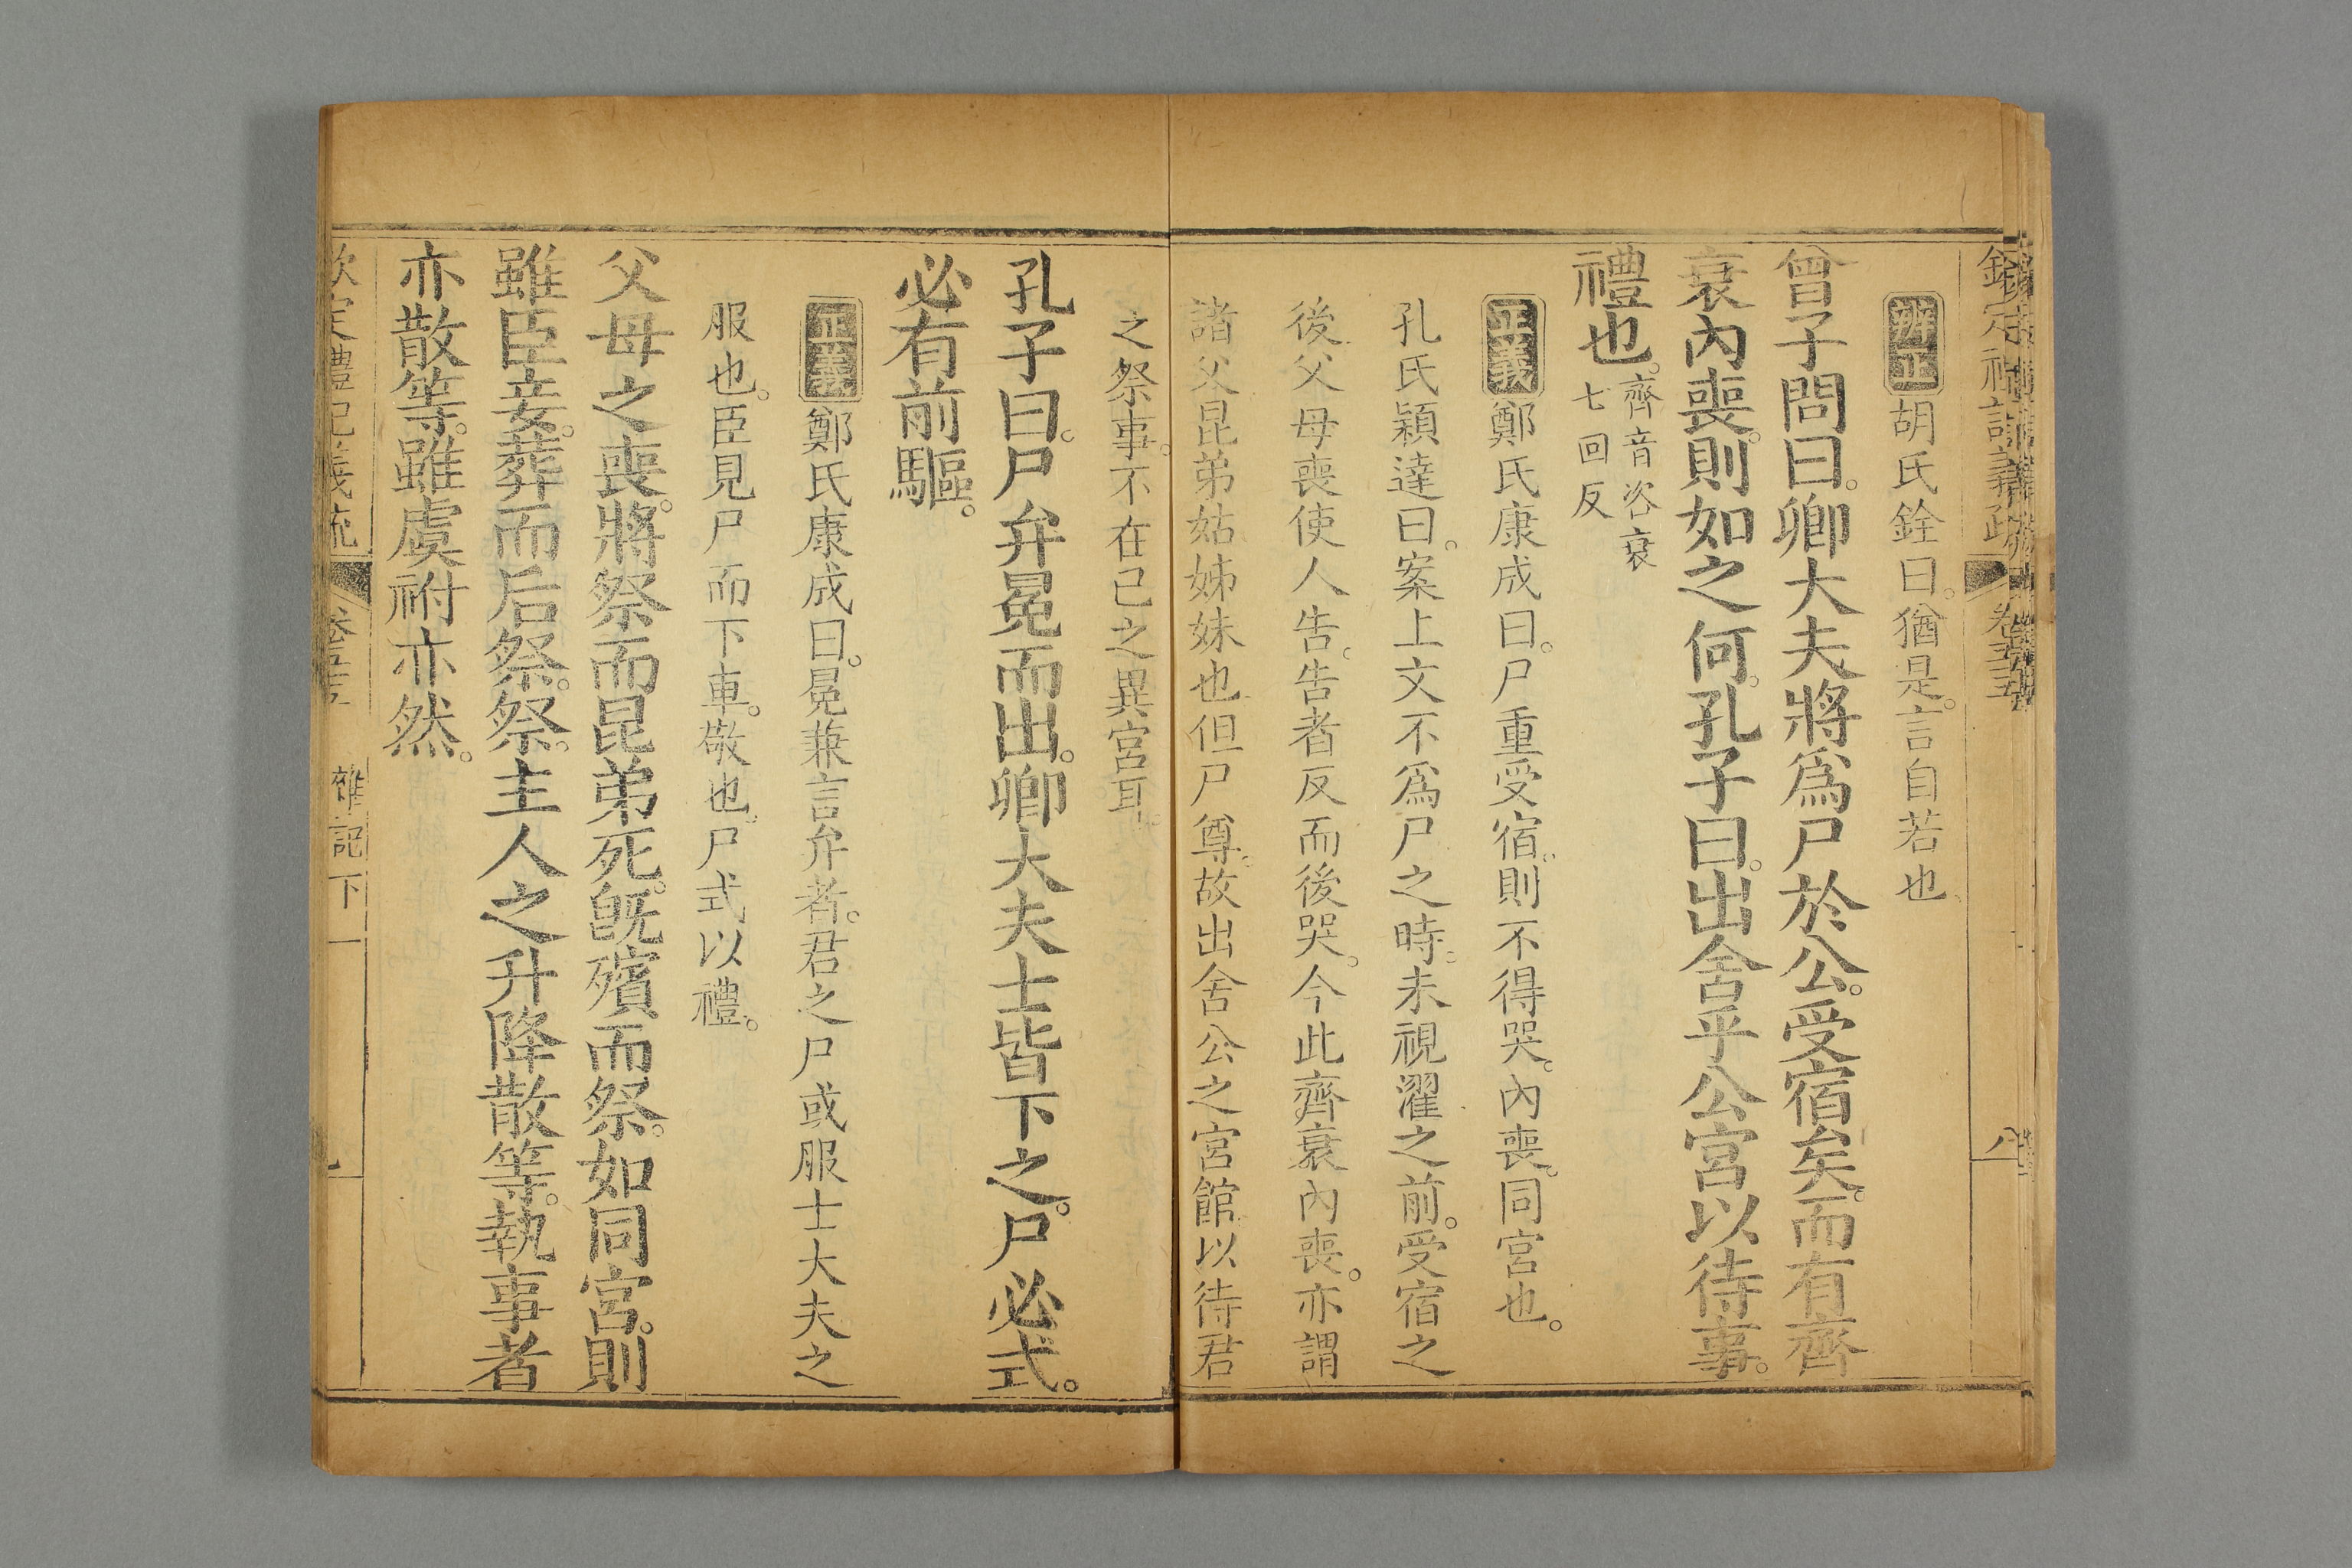 辨正 胡氏銓曰。猶是。言自若也
曾子問曰。卿大夫將爲尸於公。受宿矣。而有齊
衰內喪。則如之何。孔子曰。出舍乎公宮以待事。
禮也。齊音咨衰
七回反
正義 鄭氏康成曰。尸重受宿。則不得哭。內喪。同宮也。
孔氏穎達曰。案上文不爲尸之時。未視濯之前。受宿之
後父母喪使人告。告者反而後哭。今此齊衰內喪。亦謂
諸父昆弟姑姊妹也但尸尊。故出舍公之宮館以待君
之祭事。不在己之異宮耳。
孔子曰。尸弁冕而出。卿大夫士皆下之。尸必式。
必有前驅。
正義 鄭氏康成曰。冕兼言弁者。君之尸或服士大夫之
服也。臣見尸而下車。敬也。尸式以禮。
父母之喪。將祭而昆弟死。旣殯而祭。如同宮。則
雖臣妾。葬而后祭。祭。主人之升降散等。執事者
亦散等。雖虞祔亦然。
欽定禮記義疏 卷五 雜記下